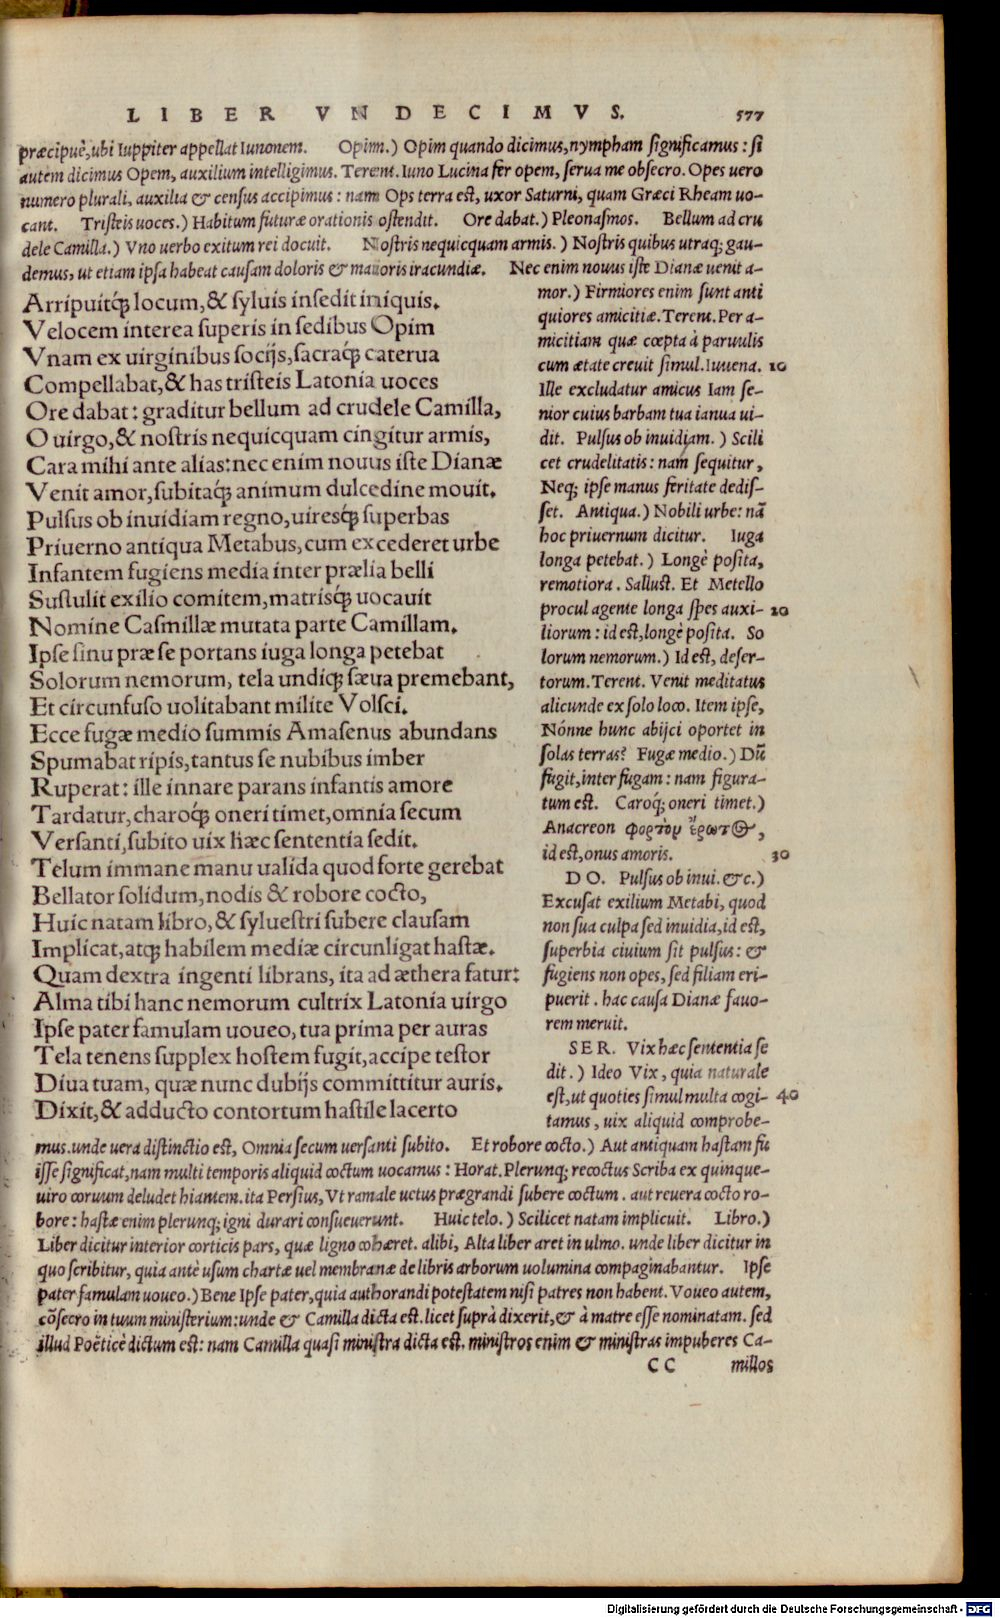 LIBER VNDECIMVS. 577
præcipuè, ubi Iuppiter appellat Iunonem. Opim.) Opim quando dicimus, nympham significamus: si
autem dicimus Opem, auxilium intelligimus. Terent. Iuno Lucina fer opem, serua me obsecro. Opes uero
numero plurali, auxilia & census accipimus: nam Ops terra est, uxor Saturni, quam Græci Rheam uo-
cant. Tristeis uoces.) Habitum futuræ orationis ostendit. Ore dabat.) Pleonasmos. Bellum ad cru
dele Camilla.) Vno uerbo exitum rei docuit. Nostris nequicquam armis.) Nostris quibus utraq; gau-
demus, ut etiam ipsa habeat causam doloris & maioris iracundiæ. Nec enim nouus iste Dianæ uenit a-
Arripuitq́; locum, & syluis insedit iniquis.
Velocem interea superis in sedibus Opim
Vnam ex uirginibus socijs, sacraq́; caterua
Compellabat, & has tristeis Latonia uoces
Ore dabat: graditur bellum ad crudele Camilla,
O uirgo, & nostris nequicquam cingitur armis,
Cara mihi ante alias: nec enim nouus iste Dianæ
Venit amor, subitaq́; animum dulcedine mouit.
Pulsus ob inuidiam regno, uiresq́; superbas
Priuerno antiqua Metabus, cum excederet urbe
Infantem fugiens media inter prælia belli
Sustulit exilio comitem, matrisq́; uocauit
Nomine Casmillæ mutata parte Camillam.
Ipse sinu præ se portans iuga longa petebat
Solorum nemorum, tela undiq; sæua premebant,
Et circunfuso uolitabant milite Volsci.
Ecce fugæ medio summis Amasenus abundans
Spumabat ripis, tantus se nubibus imber
Ruperat: ille innare parans infantis amore
Tardatur, charoq́; oneri timet, omnia secum
Versanti, subito uix hæc sententia sedit.
Telum immane manu ualida quod forte gerebat
Bellator solidum, nodis & robore cocto,
Huic natam libro, & syluestri subere clausam
Implicat, atq; habilem mediæ circunligat hastæ.
Quam dextra ingenti librans, ita ad æthera fatur:
Alma tibi hanc nemorum cultrix Latonia uirgo
Ipse pater famulam uoueo, tua prima per auras
Tela tenens supplex hostem fugit, accipe testor
Diua tuam, quæ nunc dubijs committitur auris.
Dixit, & adducto contortum hastile lacerto
mor.) Firmiores enim sunt anti
quiores amicitiæ. Terent. Per a-
micitiam quæ cœpta à paruulis
cum ætate creuit simul. Iuuena. 10
Ille excludatur amicus Iam se-
nior cuius barbam tua ianua ui-
dit. Pulsus ob inuidiam.) Scili
cet crudelitatis: nam sequitur,
Neq; ipse manus feritate dedis-
set. Antiqua.) Nobili urbe: nā
hoc priuernum dicitur. Iuga
longa petebat.) Longè posita,
remotiora. Sallust. Et Metello
procul agente longa spes auxi- 20
liorum: id est, longè posita. So
lorum nemorum.) Id est, deser-
torum. Terent. Venit meditatus
alicunde ex solo loco. Item ipse,
Nónne hunc abijci oportet in
solas terras? Fugæ medio.) Dū
fugit, inter fugam: nam figura-
tum est. Caroq́; oneri timet.)
Anacreon φορτὸν ἔρωτος,
id est, onus amoris. 30
DO. Pulsus ob inui. &c.)
Excusat exilium Metabi, quod
non sua culpa sed inuidia, id est,
superbia ciuium sit pulsus: &
fugiens non opes, sed filiam eri-
puerit. hac causa Dianæ fauo-
rem meruit.
SER. Vix hæc sententia se
dit.) Ideo Vix, quia naturale
est, ut quoties simul multa cogi- 40
tamus, uix aliquid comprobe-
mus. unde uera distinctio est, Omnia secum uersanti subito. Et robore cocto.) Aut antiquam hastam fu
isse significat, nam multi temporis aliquid coctum uocamus: Horat. Plerunq; recoctus Scriba ex quinque-
uiro coruum deludet hiantem. ita Persius, Vt ramale uetus prægrandi subere coctum. aut reuera cocto ro-
bore: hastæ enim plerunq; igni durari consueuerunt. Huic telo.) Scilicet natam implicuit. Libro.)
Liber dicitur interior corticis pars, quæ ligno cohæret. alibi, Alta liber aret in ulmo. unde liber dicitur in
quo scribitur, quia antè usum chartæ uel membranæ de libris arborum uolumina compaginabantur. Ipse
pater famulam uoueo.) Bene Ipse pater, quia authorandi potestatem nisi patres non habent. Voueo autem,
cōsecro in tuum ministerium: unde & Camilla dicta est. licet suprà dixerit, & à matre esse nominatam. sed
illud Poëticè dictum est: nam Camilla quasi ministra dicta est. ministros enim & ministras impuberes Ca-
CC millos
Digitalisierung gefördert durch die Deutsche Forschungsgemeinschaft - DFG